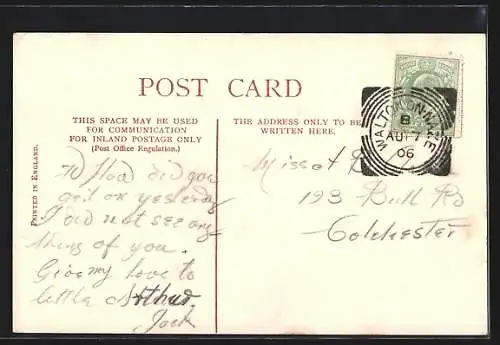 POST CARD
THIS SPACE MAY BE USED
FOR COMMUNICATION
FOR INLAND POSTAGE ONLY
(Post Office Regulation.)
THE ADDRESS ONLY TO BE
WRITTEN HERE.
PRINTED IN ENGLAND.
WALTON-ON-NAZE
AU 7
06
How did you
get on yesterday
I did not see any
thing of you.
Give my love to
little Arthur.
Jack
Miss
193 Bull Rd
Colchester